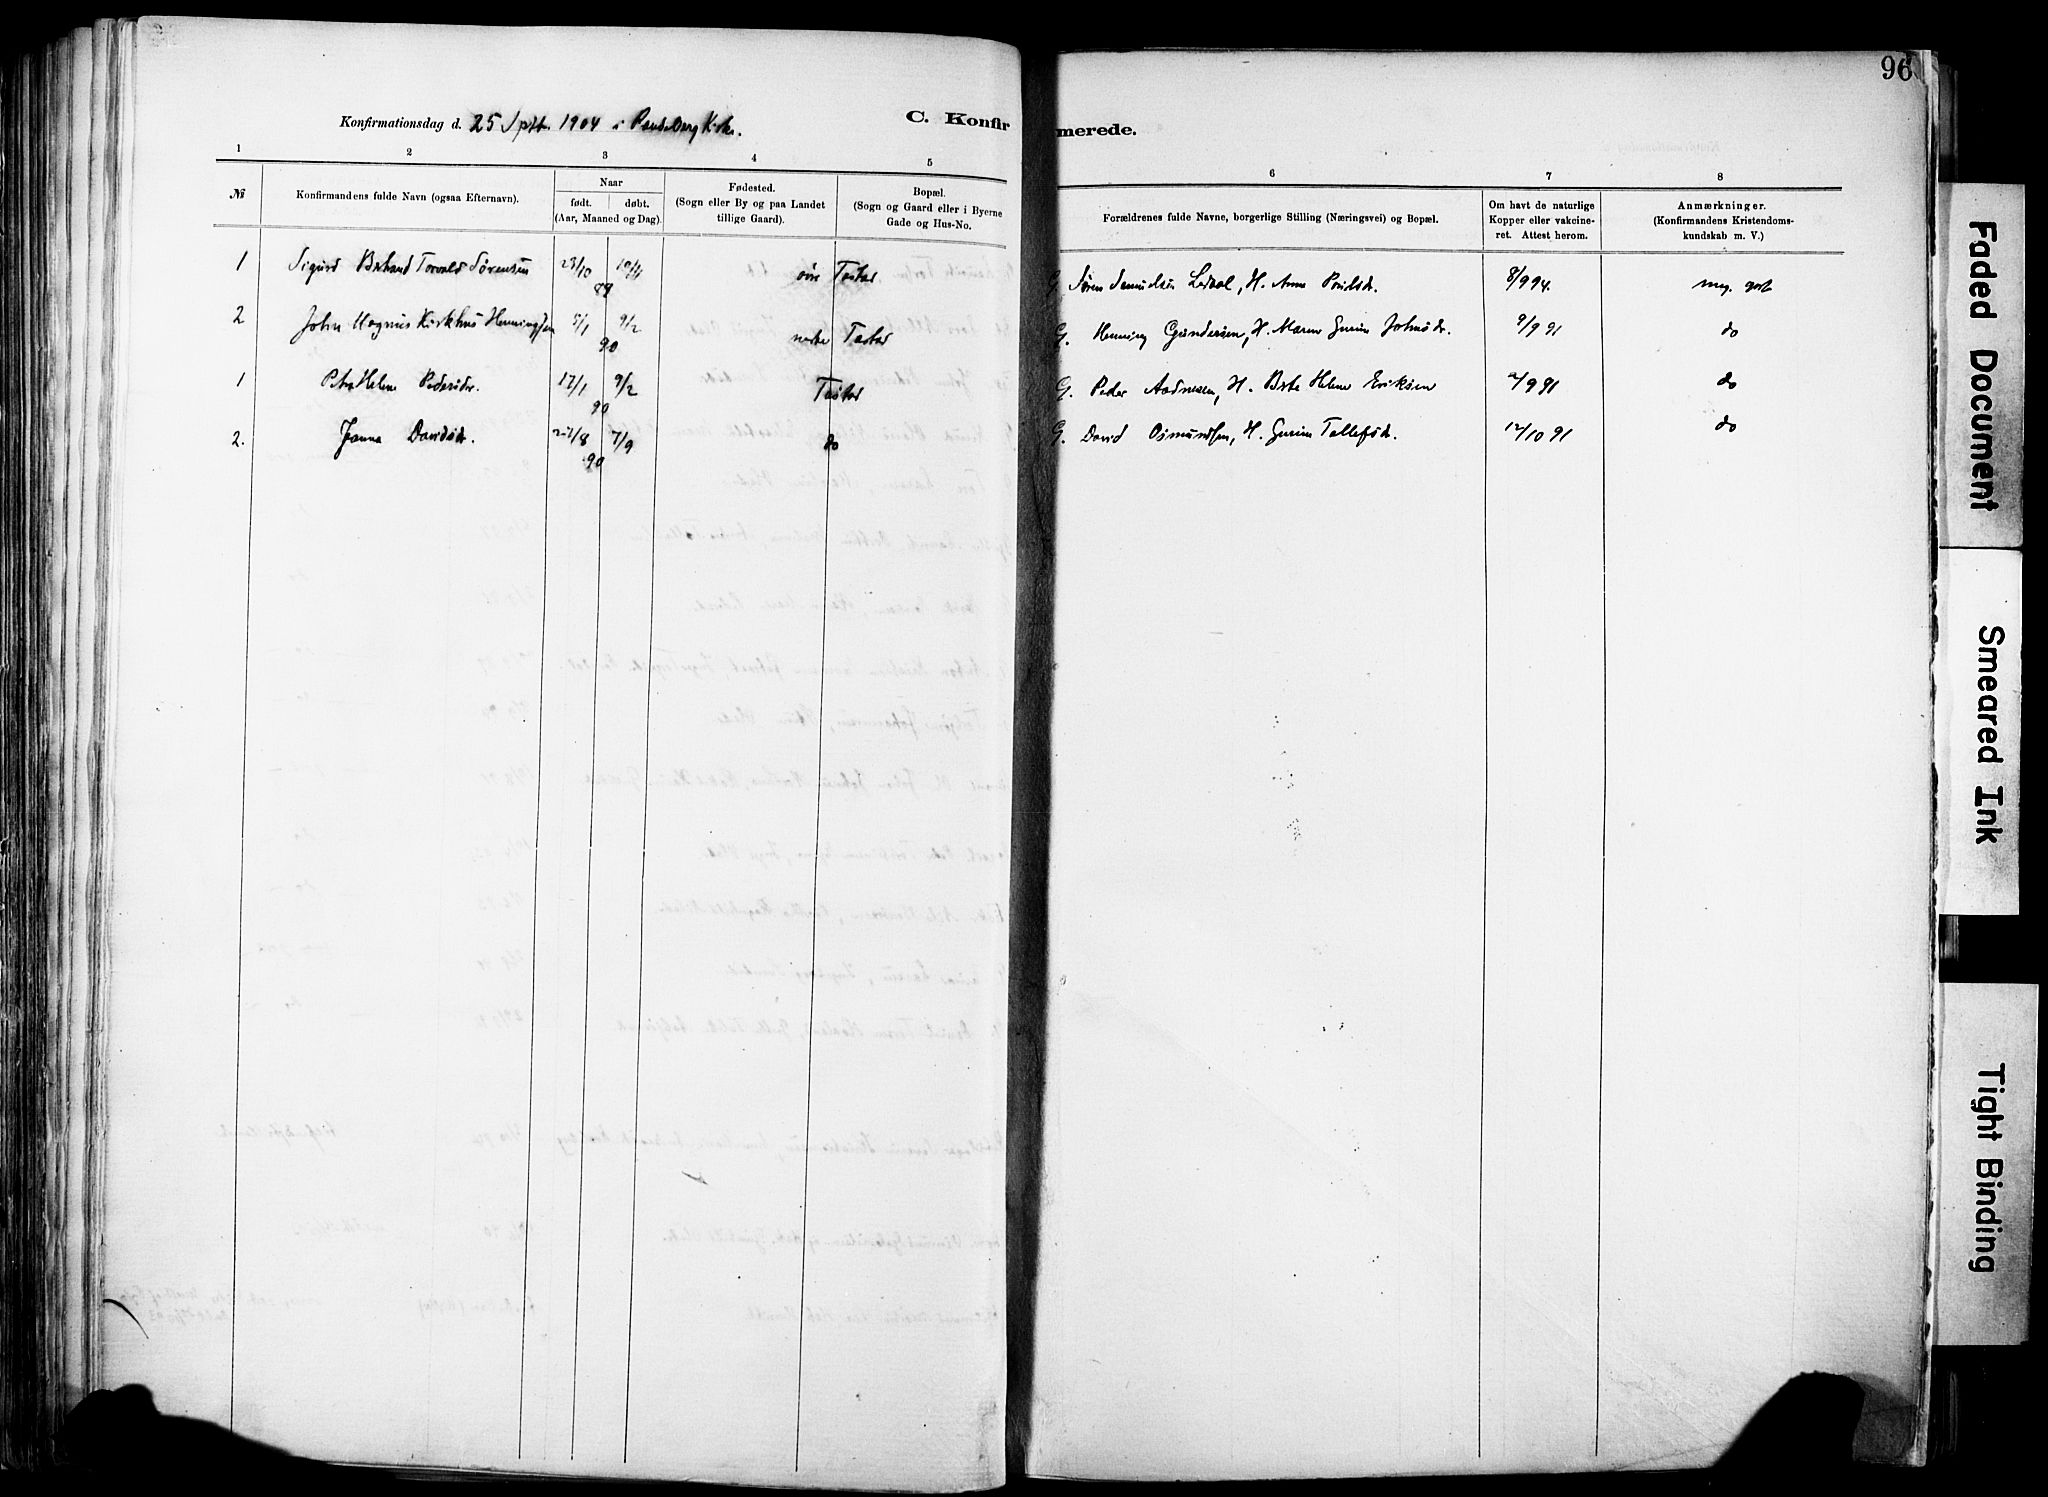 96
Konfirmationsdag d. 25 Sptb. 1904 i Randaberg Kirke.
C. Konfirmerede.
1 2 3 4 5 6 7 8
№
Konfirmandens fulde Navn (ogsaa Efternavn).
Naar
født. døbt.
(Aar, Maaned og Dag).
Fødested.
(Sogn eller By og paa Landet
tillige Gaard).
Bopæl.
(Sogn og Gaard eller i Byerne
Gade og Hus-No.
Forældrenes fulde Navne, borgerlige Stilling (Næringsvei) og Bopæl.
Om havt de naturlige
Kopper eller vakcine-
ret. Attest herom.
Anmærkninger.
(Konfirmandens Kristendoms-
kundskab m. V.)
1 Sigurd Torvald Sørensen 29/10 10/11 89 øvre Tastad G. Søren Samuelsen Ledaal, H. Anna 8/9 94. meg. godt
2 John Magnus Kirkhus Henningsen 5/1 9/2 90 nedre Tastad G. Henning Gundersen, H. Maren Gurine Johnsdr. 9/9 91 do
1 Petra Helene Pedersdr. 17/1 9/2 90 Tastad G. Peder Aadnesen, H. Berta Helene Eriksen /9 91 do
2. Janna Davidsdr. 27/8 7/9 90 do G. David Osmundsen, H. Gurine Tollefsdr. 12/10 91 do
Faded Document
Smeared Ink
Tight Binding